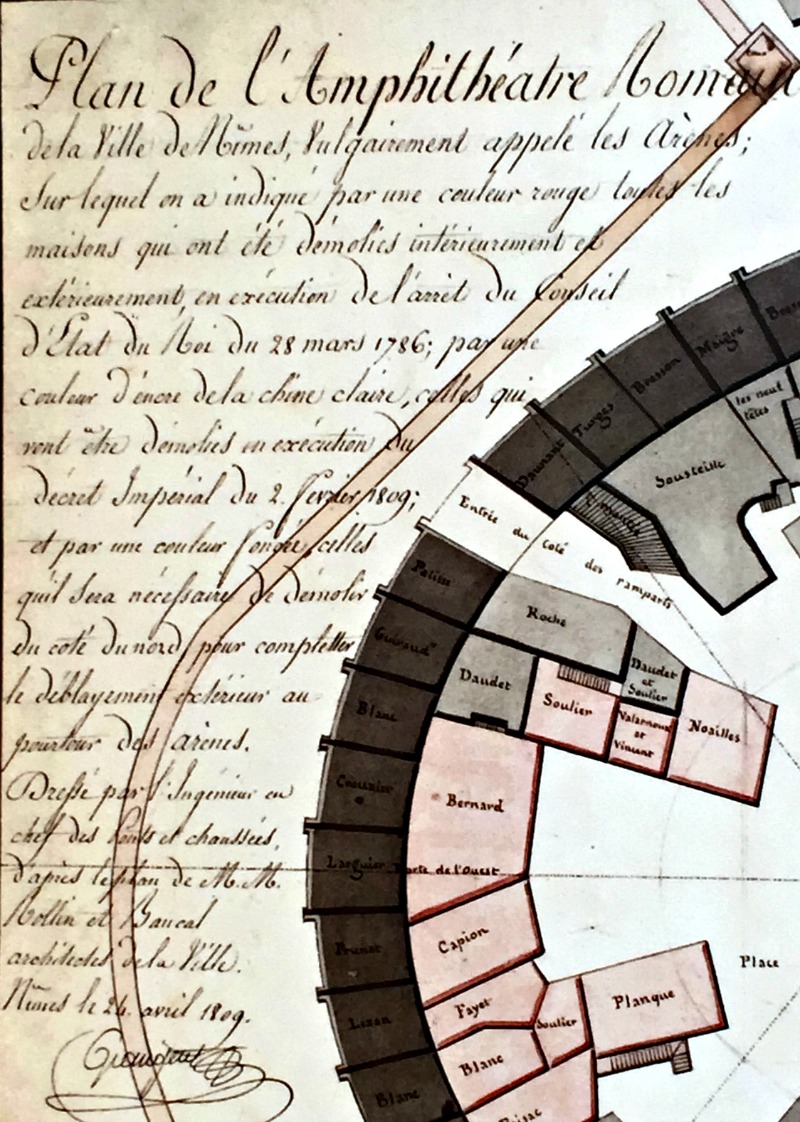 Plan de l'Amphithéatre Romain
de la Ville de Nîmes, Vulgairement appelé les Arènes;
Sur lequel on a indiqué par une couleur rouge toutes les
maisons qui ont été démolies intérieurement et
extérieurement, en exécution de l'arrêt du Conseil
d'État du Roi du 28 mars 1786; par une
couleur d'encre de la chine claire, celles qui
vont être démolies en exécution du
décret Impérial du 2. fevrier 1809;
et par une couleur foncée, celles
qu'il sera nécessaire de démolir
du coté du nord pour completter
le déblayement extérieur au
pourtour des arènes.
Dressé par l'Ingénieur en
chef des Ponts et chaussées,
d'après le plan de M.M.
Rollin et Baucal
architectes de la Ville.
Nîmes le 24. avril 1809.
Maigre
Bresson
Turges
Daunant
les neuf
têtes
Sousteille
Entrée du coté des remparts
Roche
Daudet
Daudet
et
Soulier
Soulier
Valarnoux
et
Vincent
Noailles
Blanc
Bernard
Larguier
Porte de l'Ouest
Capion
Brunet
Fayet
Soulier
Planque
Place
Lizan
Blanc
Blanc